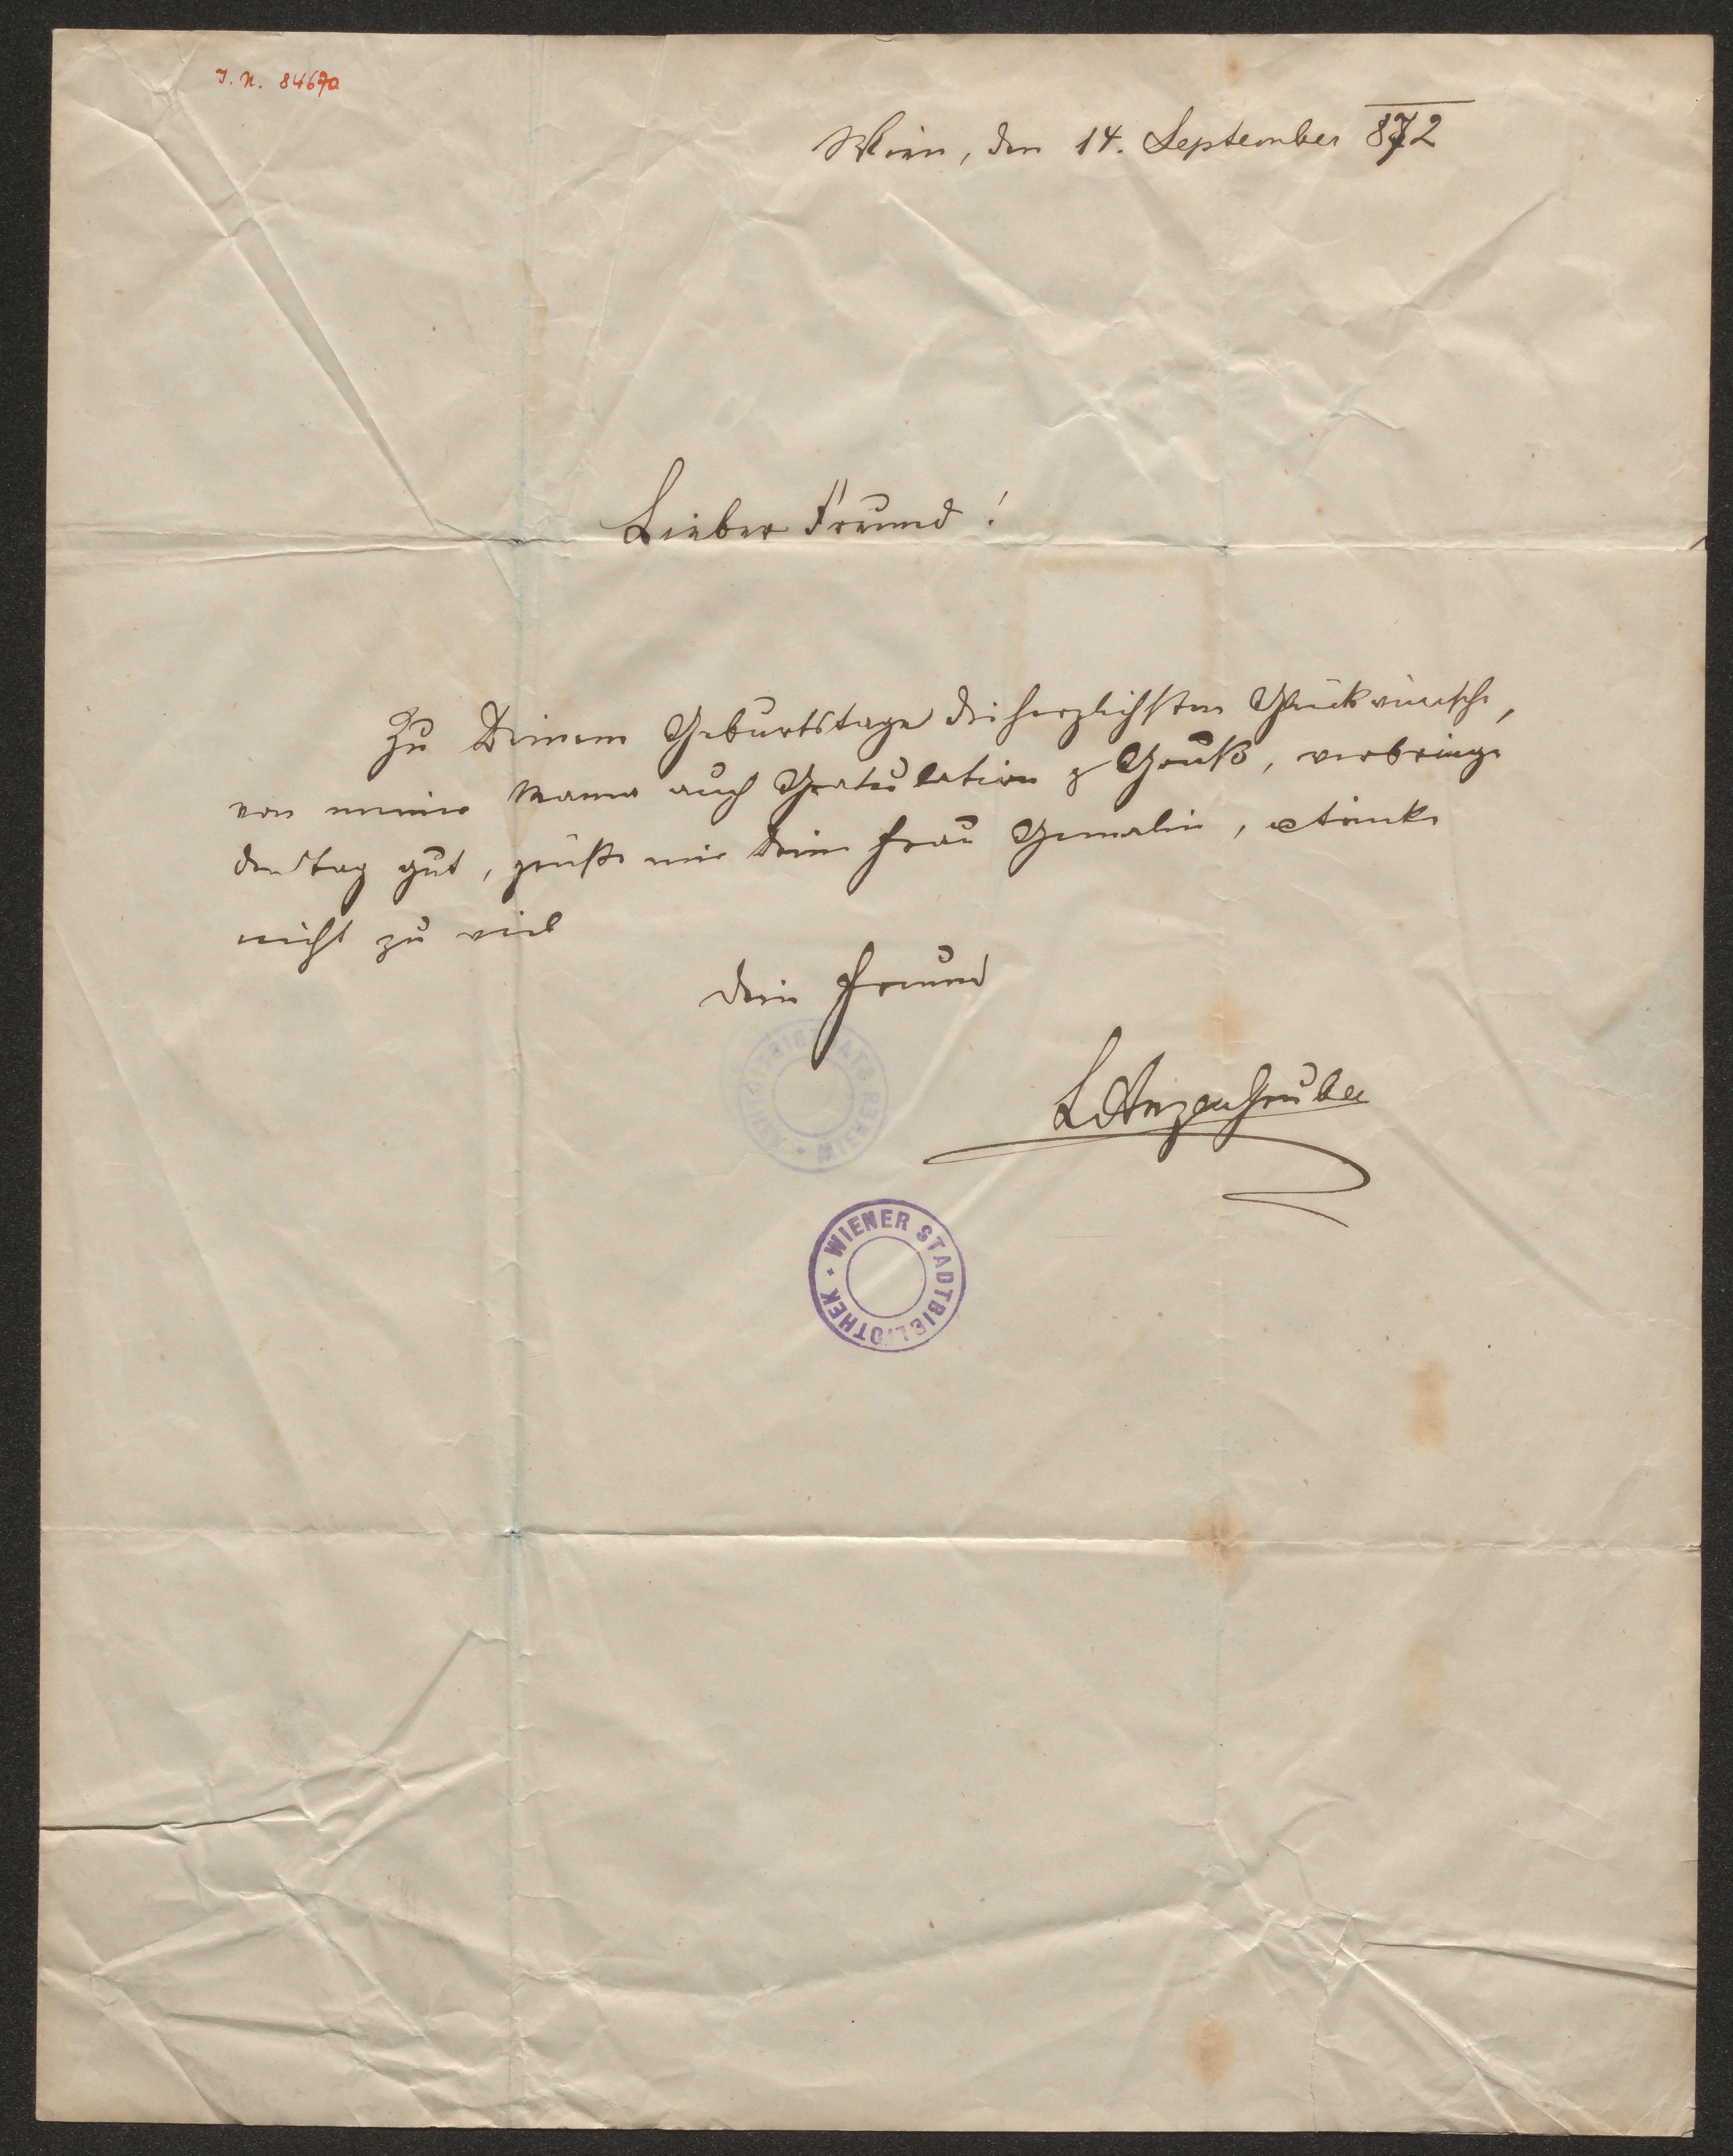 J. N. 84670
Wien, den 14. September 872
Lieber Freund!
Zu Deinem Geburtstage die herzlichsten Glückwünsche,
von meiner Mama auch Gratulation & Gruß, verbringe
den Tag gut, grüße mir Deine Frau Gemalin, & trinke
nicht zu viel
Dein Freund
LAnzengruber
WIENER STADTBIBLIOTHEK